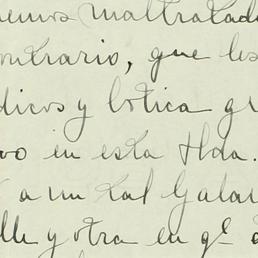 emos maltratad
ontrario, que les
dicos y botica gr
vo en esta Hda.
a un tal Gala
lle y otra en qe